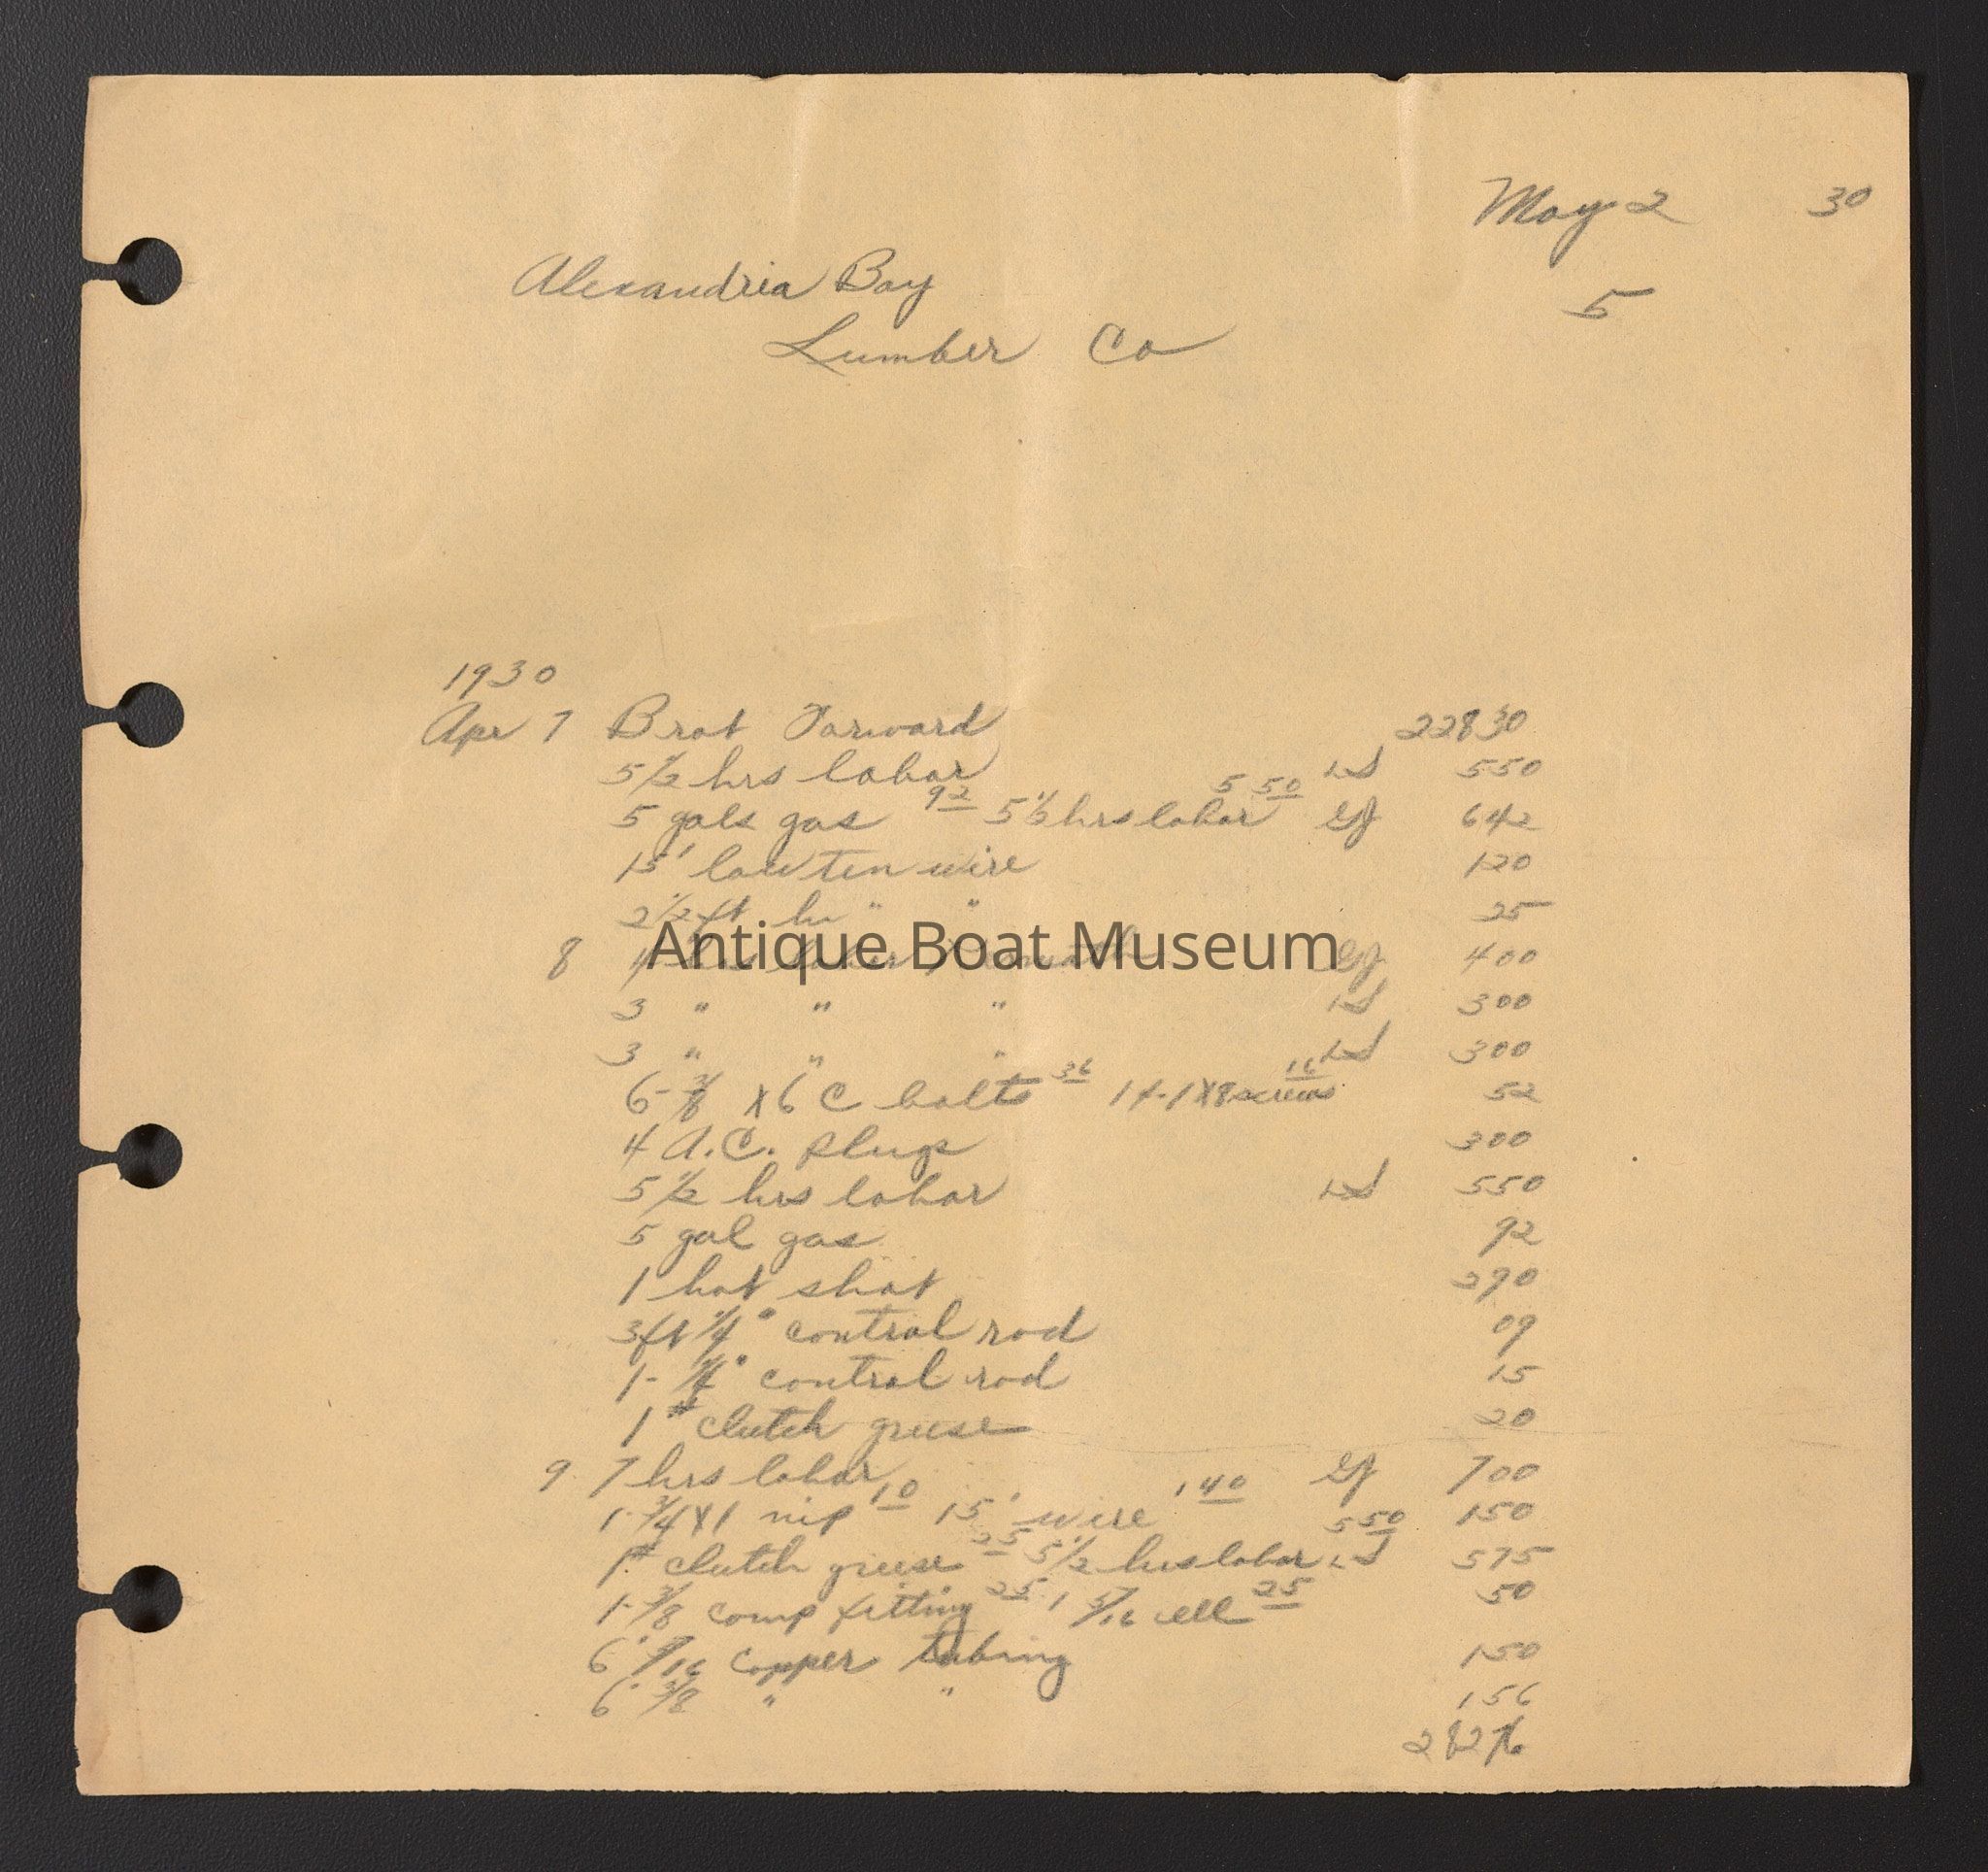 May 2 30
5
Alexandria Bay
Lumber Co
1930
Apr 7 Brot Forward 228 30
5 1/2 hrs labor LS 5 50
5 gals gas 92 5 1/2 hrs labor 5 50 GJ 6 42
15' low ten wire 1 20
2 1/2 ft hi " " 25
Antique Boat Museum
8 4 hrs labor GJ 4 00
3 " " " LS 3 00
3 " " " LS 3 00
6-3/8 x 6 C bolts 36 14-1x8 screws 16 52
4 A.C. plugs 3 00
5 1/2 hrs labor LS 5 50
5 gal gas 92
1 hot shot 2 90
3 ft 1/4" control rod 09
1- 1/4" control rod 15
1# clutch greese 20
9 7 hrs labor GJ 7 00
1-3/4 x 1 nip 10 15' wire 1 40 1 50
1# clutch greese 25 5 1/2 hrs labor LS 5 50 5 75
1-3/8 comp fitting 25 1 5/16 ell 25 50
6' 5/16 copper tubing 1 50
6' 3/8 " " 1 56
282 76